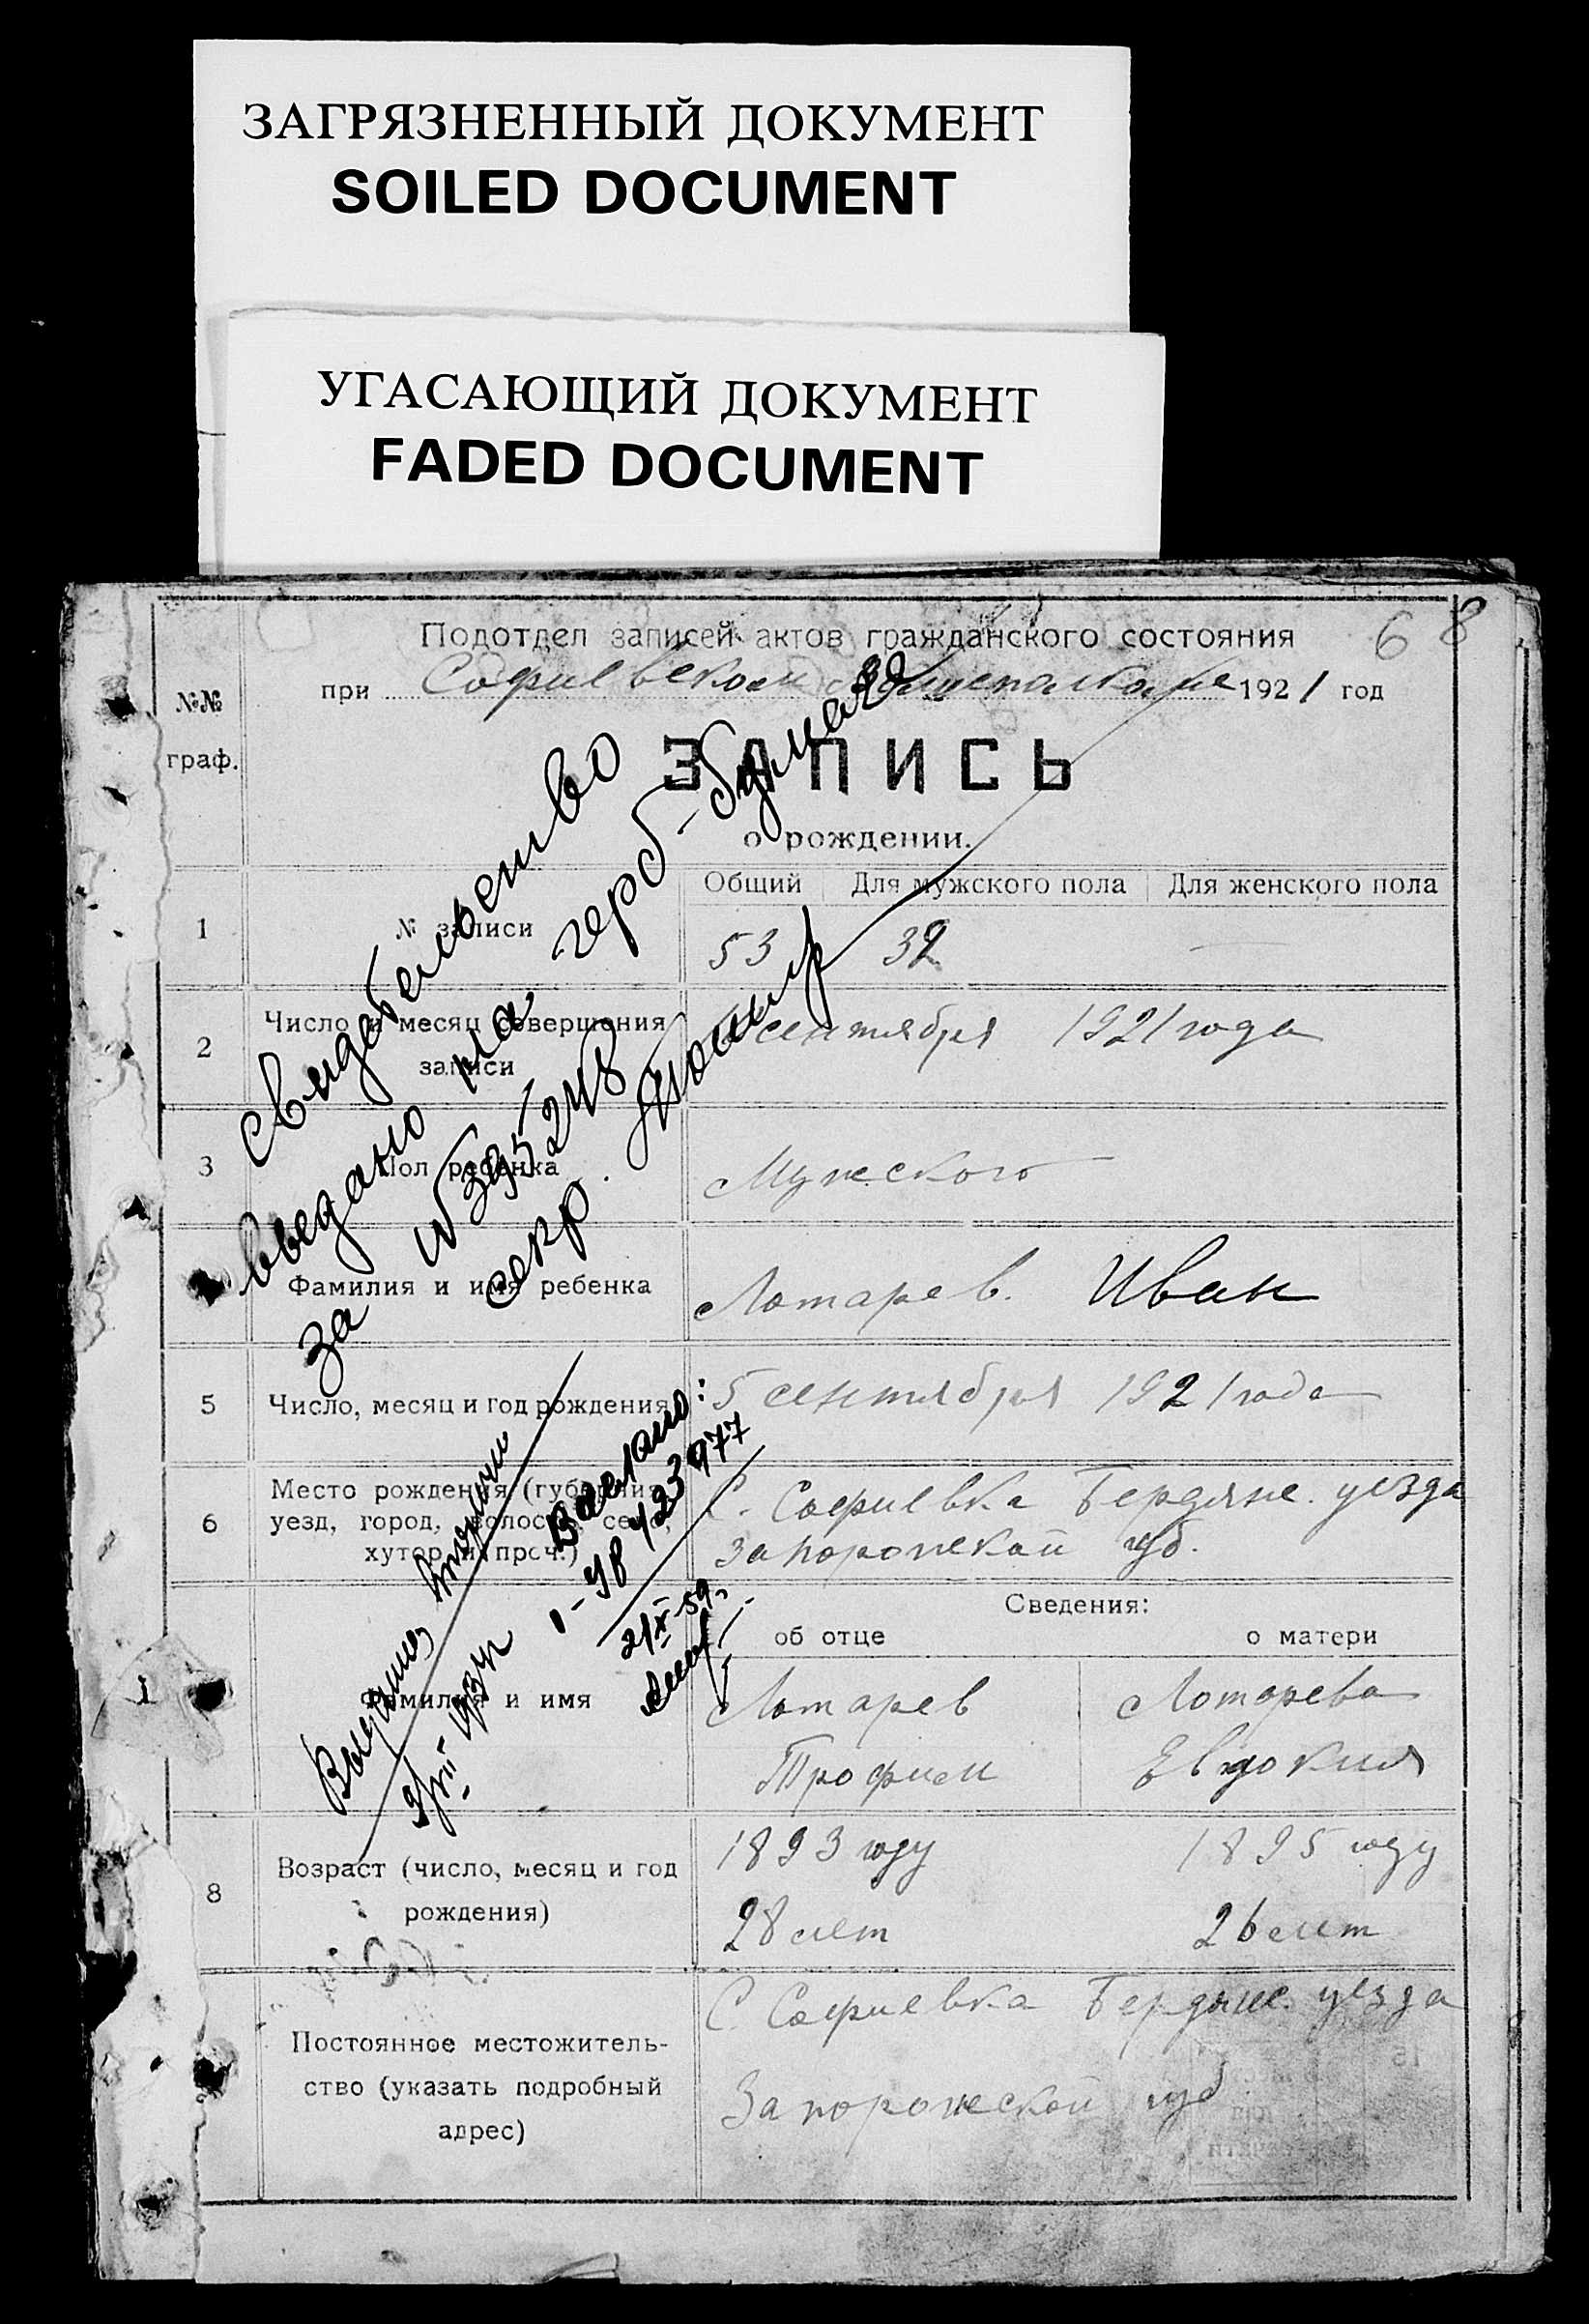 ЗАГРЯЗНЕННЫЙ ДОКУМЕНТ
SOILED DOCUMENT
УГАСАЮЩИЙ ДОКУМЕНТ
FADED DOCUMENT
68
Подотдел записей актов гражданского состояния
при Софиевском 1921 год
№№ граф.
ЗАПИСЬ
о рождении.
Общий Для мужского пола Для женского пола
1 № записи 53 32
2 Число и месяц совершения записи сентября 1921 года
3 Пол ребенка Мужского
Фамилия и имя ребенка Лотарев. Иван
5 Число, месяц и год рождения: 5 сентября 1921 года
6 Место рождения (губерния, уезд, город, волость, село, хутор и проч.)
С. Софиевка Бердянс. уезда
Запорожской губ.
Сведения:
об отце о матери
Фамилия и имя
Лотарев Лотарева
Трофим Евдокия
8 Возраст (число, месяц и год рождения)
1893 году 1895 году
28 лет 26 лет
Постоянное местожитель-
ство (указать подробный
адрес)
С. Софиевка Бердянс. уезда
Запорожской губ
свидетельство
на герб-бумаге
за №395248
секр.
Выслано:
1-УВ 423977
21/X-59